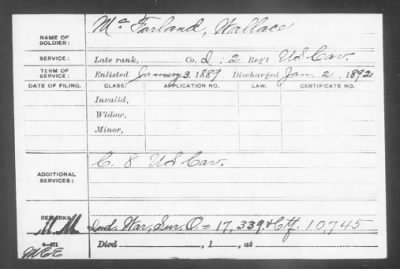 NAME OF SOLDIER: Mc Farland, Wallace
SERVICE: Late rank, Co. D, 2 Reg't US Cav.
TERM OF SERVICE: Enlisted January 3, 1887 Discharged Jan. 2, 1892
DATE OF FILING. CLASS. APPLICATION NO. LAW. CERTIFICATE NO.
Invalid,
Widow,
Minor,
ADDITIONAL SERVICES: C. 8 US Cav.
REMARKS: Ind. War, Sur. O = 17,339 + Ctf. 10,745
Died , 1 , at